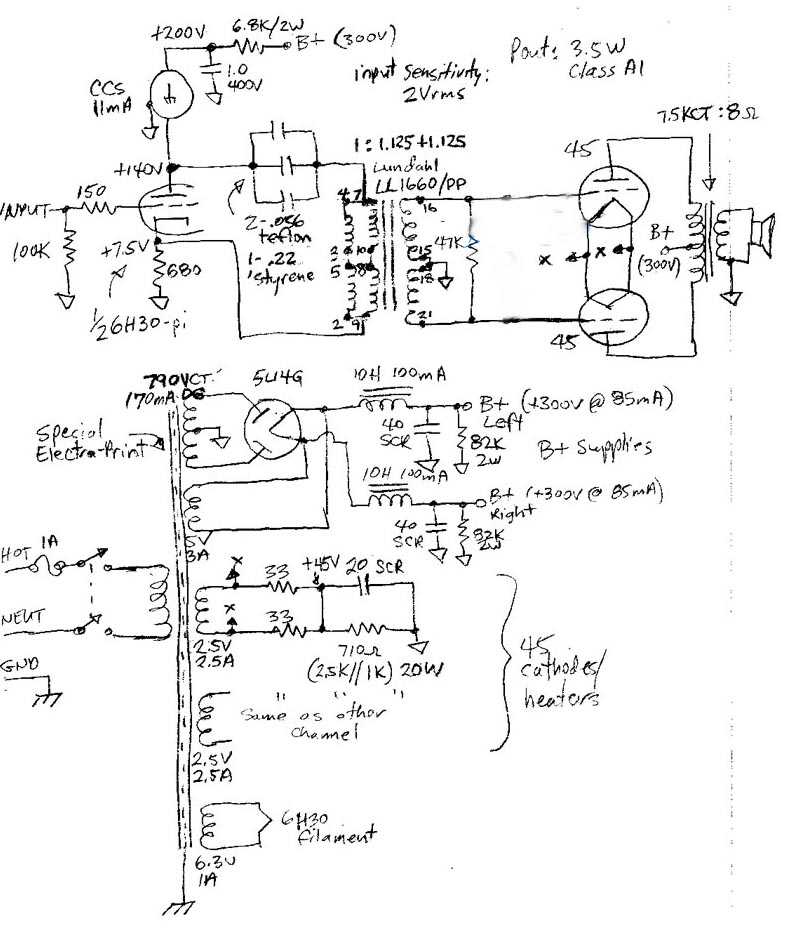 +200V
6.8K/2W
B+ (300V)
1.0
400V
CCS
11mA
input sensitivity:
2Vrms
Pout: 3.5W
Class A1
7.5KCT:8Ω
1:1.125+1.125
Lundahl
LL1660/PP
+140V
45
INPUT
150
100K
+7.5V
680
1/2 6H30-pi
2-.056
teflon
1-.22
'styrene
4 7
2 10
5 8
2 9
16
15
18
21
47K
x
x
B+
(300V)
45
790VCT
170mA DC
5U4G
10H 100mA
B+ (+300V @ 85mA)
Left
40
SCR
82K
2W
B+ Supplies
Special
Electra-Print
10H 100mA
B+ (+300V @ 85mA)
Right
40
SCR
82K
2W
5V
3A
HOT 1A
NEUT
GND
x
x
33
33
+45V
20 SCR
710Ω
(2.5K//1K) 20W
2.5V
2.5A
45
cathodes/
heaters
" " "
Same as other
channel
2.5V
2.5A
6H30
filament
6.3V
1A